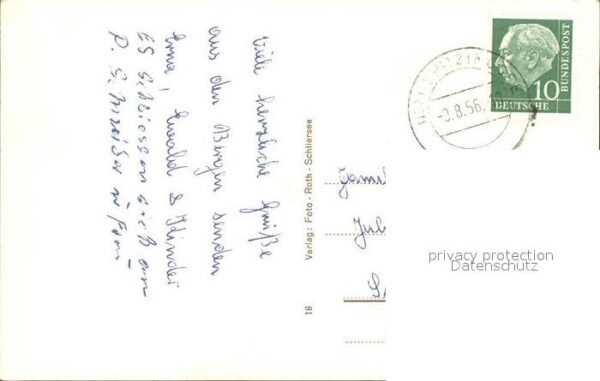 Viele herzliche Grüße
aus den Bergen senden
Erna, Ewald & Kinder
Es schliessen sich an
P. Schneider u Frau
Verlag: Foto - Roth - Schliersee
18
8.56.
10
DEUTSCHE
BUNDESPOST
privacy protection
Datenschutz